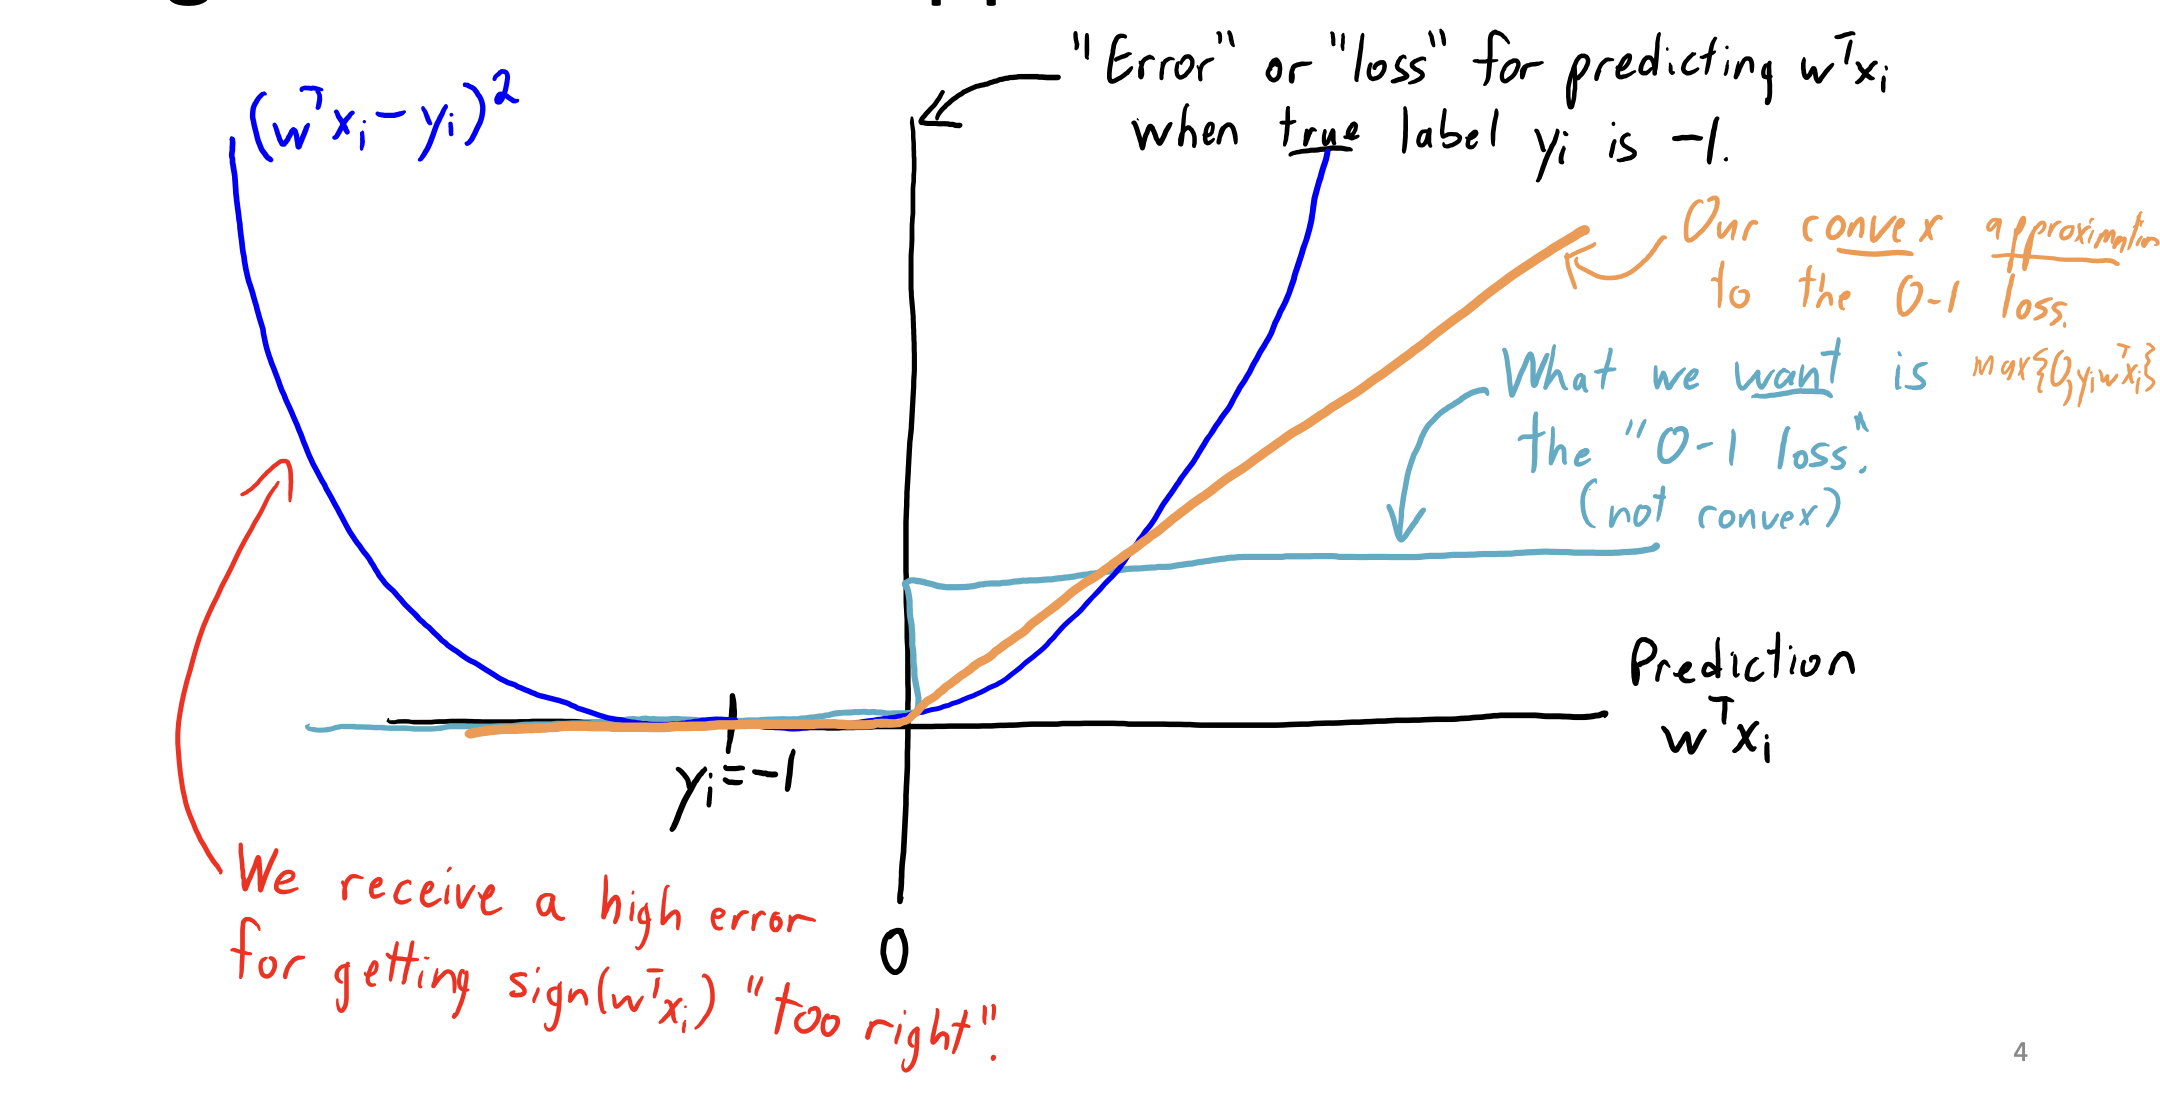 (wᵀxᵢ-yᵢ)²
"Error" or "loss" for predicting wᵀxᵢ
when true label yᵢ is -1.
Our convex approximation
to the 0-1 loss.
max{0,yᵢwᵀxᵢ}
What we want is
the "0-1 loss".
(not convex)
Prediction
wᵀxᵢ
yᵢ=-1
0
We receive a high error
for getting sign(wᵀxᵢ) "too right".
4